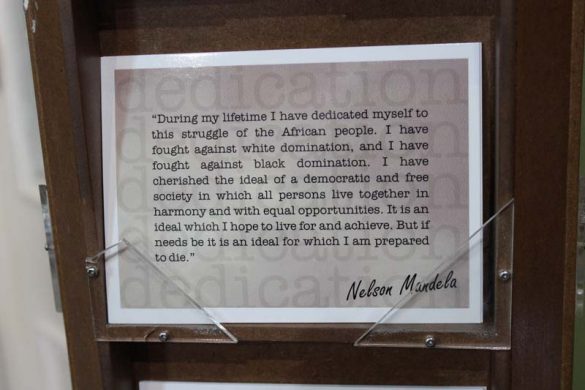 dedication
“During my lifetime I have dedicated myself to
this struggle of the African people. I have
fought against white domination, and I have
fought against black domination. I have
cherished the ideal of a democratic and free
society in which all persons live together in
harmony and with equal opportunities. It is an
ideal which I hope to live for and achieve. But if
needs be it is an ideal for which I am prepared
to die.”
dedication
Nelson Mandela